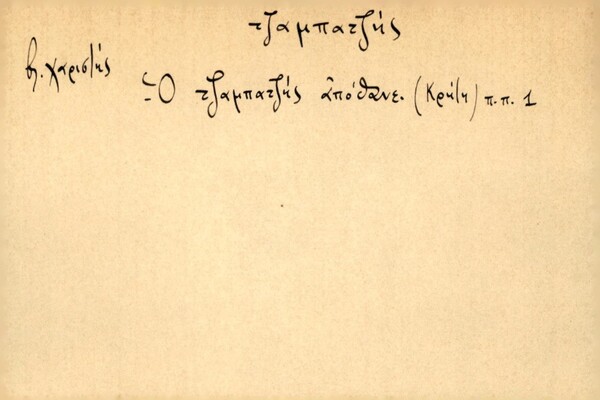 τζαμπατζής
βλ. χαριστής
Ὁ τζαμπατζής ἀπόθανε. (Κρήτη) π.π. 1